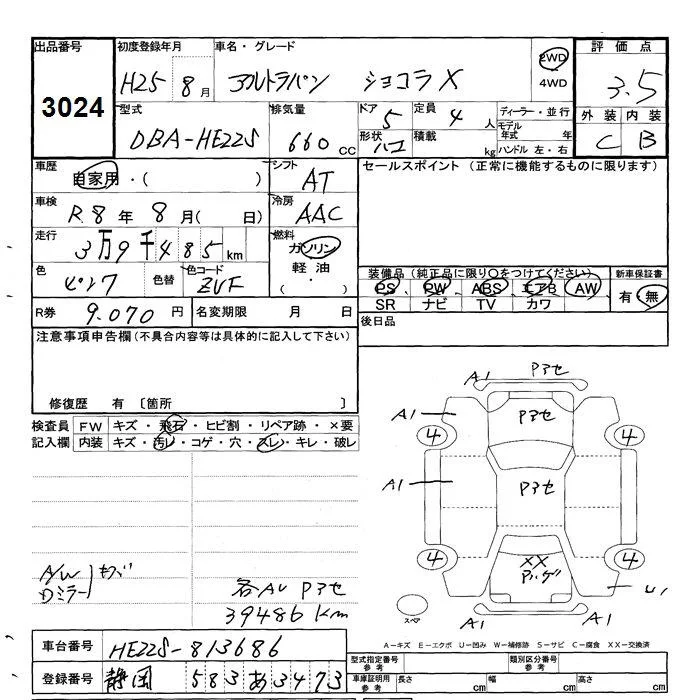 出品番号 初度登録年月 車名・グレード 評価点
3024 H25 8月 アルトラパン ショコラX 2WD 4WD 3.5
型式 排気量 ドア 定員 ディーラー・並行 外装 内装
DBA-HE22S 660cc 5 4人 モデル年式 年 C B
形状 ハコ 積載 kg ハンドル 左・右
車歴 自家用・( ) シフト AT セールスポイント (正常に機能するものに限ります)
車検 R.8年 8月( 日) 冷房 AAC
走行 3万9千485km 燃料 ガソリン 軽油・( )
色 ピンク 色替 色コード ZVF
装備品(純正品に限り○をつけてください) 新車保証書
PS PW ABS エアB AW 有・無
SR ナビ TV カワ
R券 9.070円 名変期限 月 日 後日品
注意事項申告欄(不具合内容等は具体的に記入して下さい)
修復歴 有 〔箇所 〕
検査員 FW キズ・飛石・ヒビ割・リペア跡・×要
記入欄 内装 キズ・汚レ・コゲ・穴・スレ・キレ・破レ
A1 Pアセ
A1 Pアセ
4 4
A1 Pアセ
4 XX 4
U1
A1 A1
スペア
A/W
Dミラー キズ
各AU Pアセ
39486km
A-キズ E-エクボ U-凹み W-補修跡 S-サビ C-腐食 XX-交換済
車台番号 HE22S-813686
登録番号 静岡 583 あ 3473
型式指定番号参考 類別区分番号参考
車庫証明用参考 長さ cm 幅 cm 高さ cm